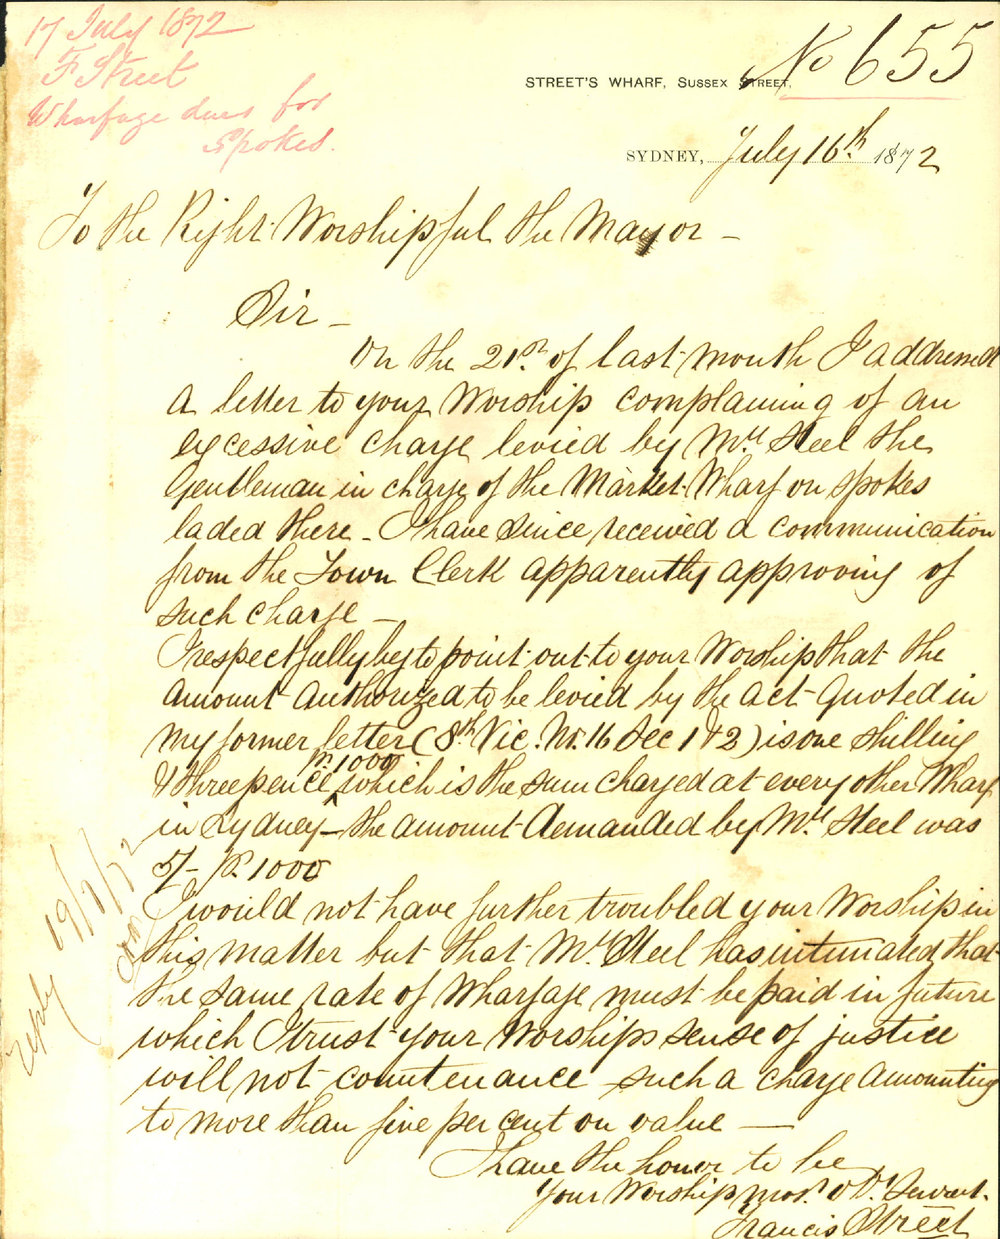 17 July 1872
F Street
Wharfage dues for
Spokes.
No 655
STREET'S WHARF, SUSSEX STREET,
SYDNEY, July 16th. 1872
To the Right Worshipful the Mayor -
Sir -
On the 21st. of last month I addressed
a letter to your Worship complaining of an
excessive charge levied by Mr. Steel the
Gentleman in charge of the Market Wharf on spokes
laded there - I have since received a communication
from the Town Clerk apparently approving of
such charge -
I respectfully beg to point out to your Worship that the
amount authorized to be levied by the act quoted in
my former letter (8th Vic. No. 16 Sec 1 & 2) is one shilling
& threepence pr. 1000 which is the sum charged at every other Wharf
in Sydney - the amount demanded by Mr. Steel was
5/- Pr. 1000
I would not have further troubled your Worship in
this matter but that Mr. Steel has intimated that
the same rate of Wharfage must be paid in future
which I trust your Worships sense of justice
will not countenance such a charge amounting
to more than five per cent on value -
I have the honor to be
Your Worships most Obt. Servant.
Francis Street
reply 19/7/72